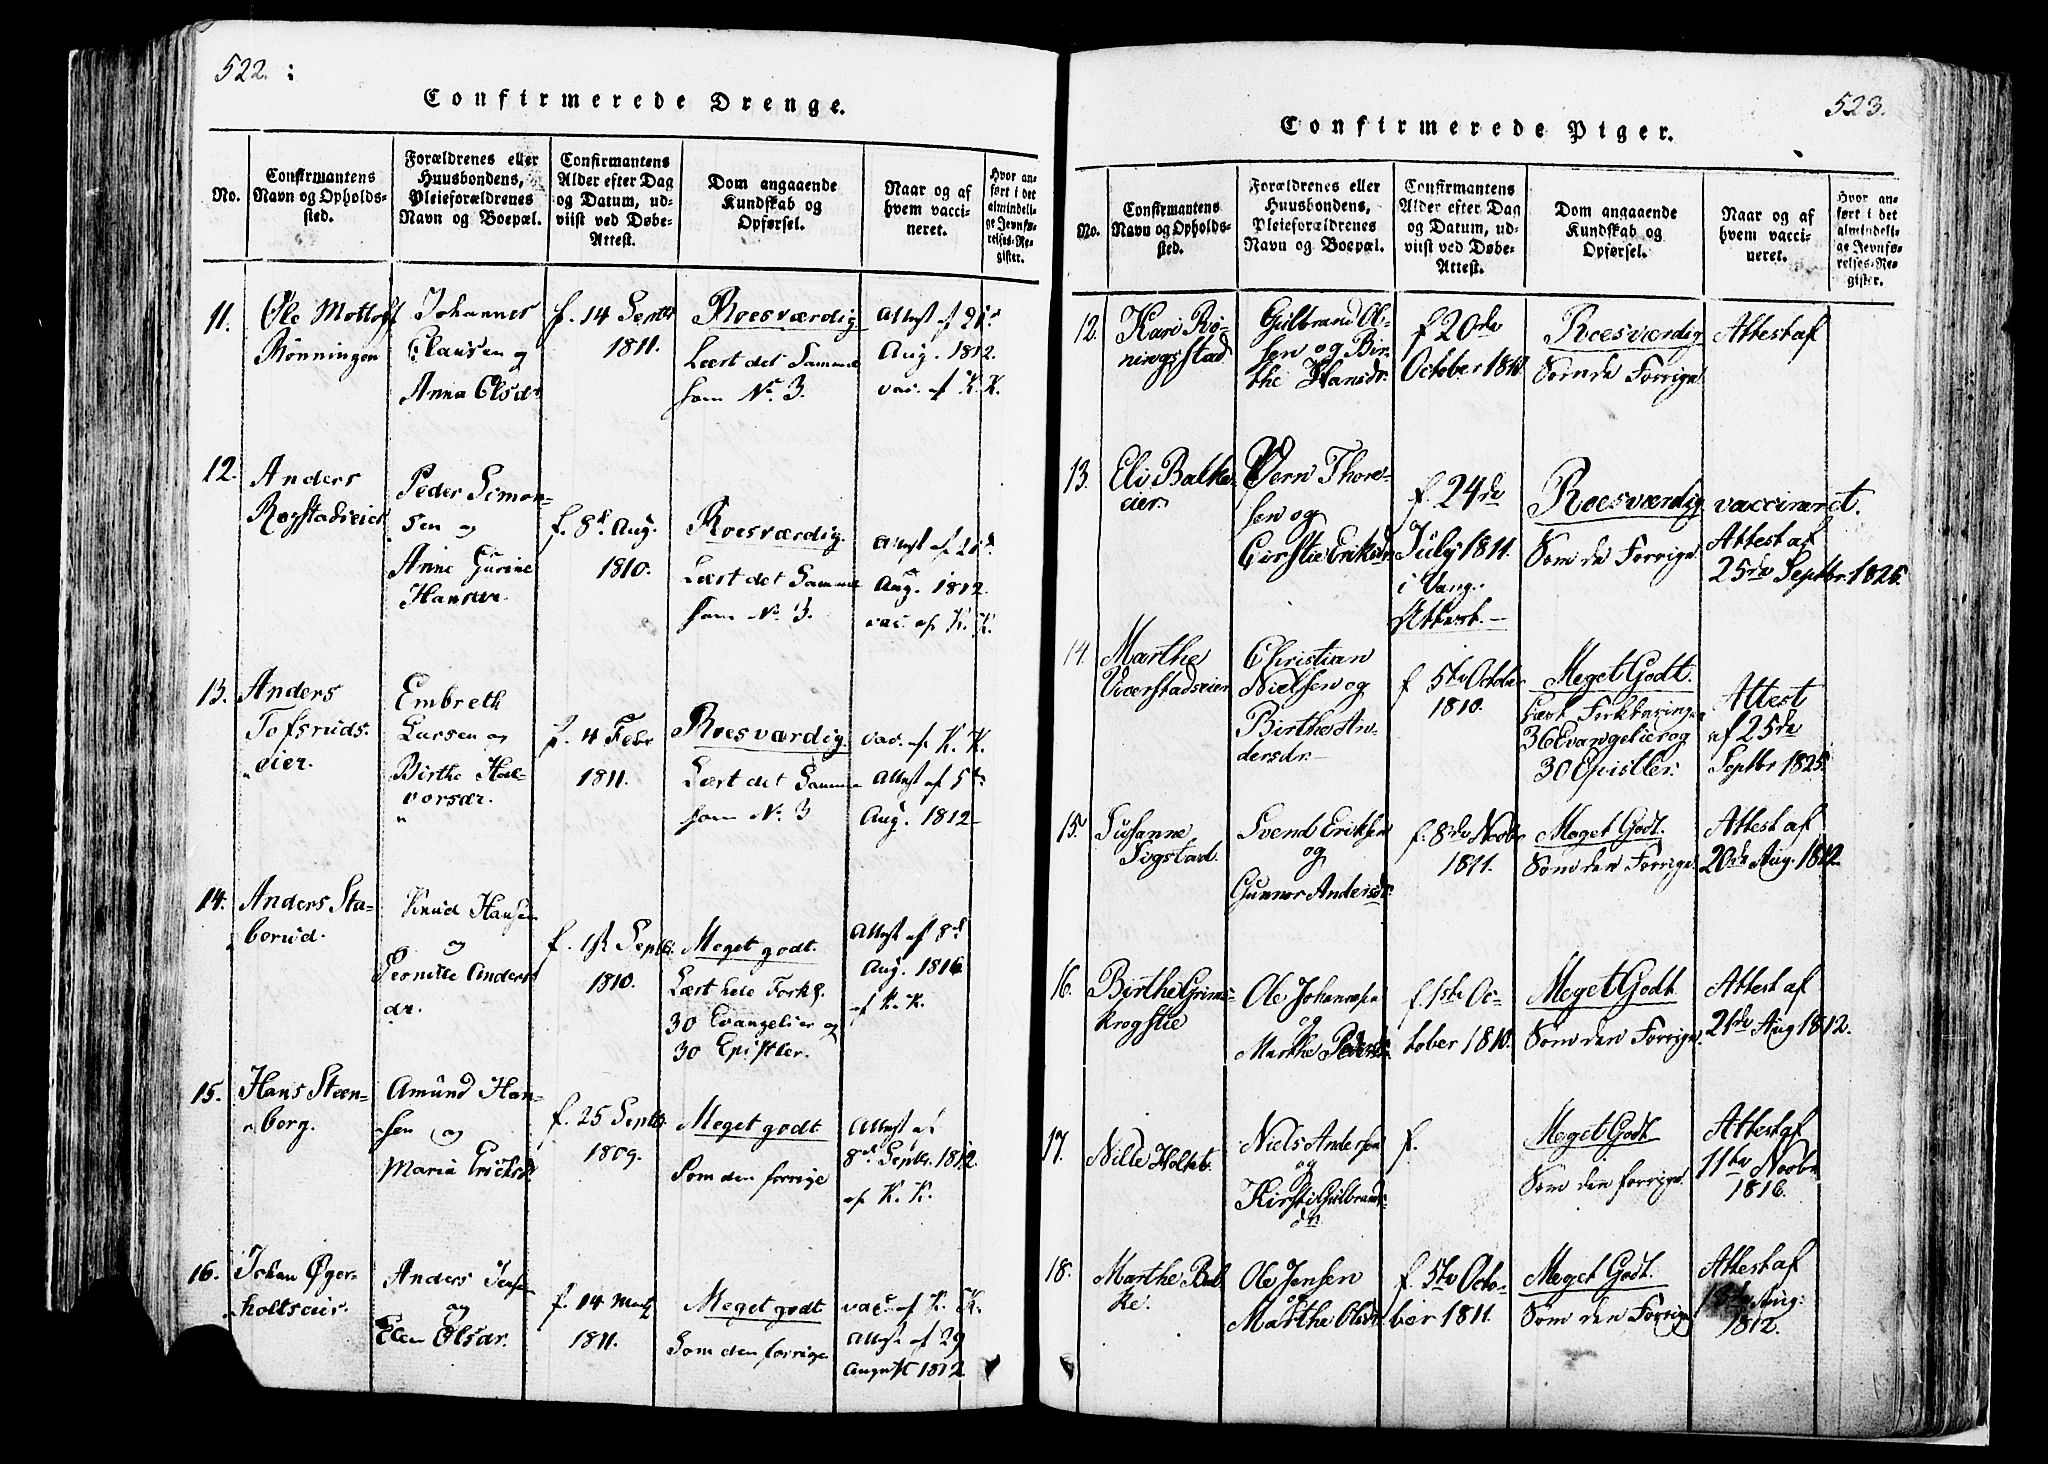 522.
Confirmerede Drenge.
No.
Confirmantens
Navn og Opholds-
sted.
Forældrenes eller
Huusbondens,
Pleieforældrenes
Navn og Boepæl.
Confirmantens
Alder efter Dag
og Datum, ud-
viist ved Døbe-
Attest.
Dom angaaende
Kundskab og
Opførsel.
Naar og af
hvem vacci-
neret.
Hvor an-
ført i det
almindeli-
ge Jevnfø-
relses-Re-
gister.
11.
Ole
Rønningen
Johannes
Clausen og
Anna Olsdr
f. 14 Septbr
1811.
Roesværdig
Læst det Samme
som No. 3.
Attest af 21de
Aug. 1812.
vac. af K. K.
12.
Anders
Rogstadeier
Peder Simon-
sen og
Anne Gurine
Hansdr.
f. 8d Aug.
1810.
Roesværdig.
Læst det Samme
som No. 3.
Attest af 21d.
Aug. 1812.
vac. af K. K.
13.
Anders
Tofsruds-
eier.
Embreth
Larsen og
Birthe Hal-
vorsdr.
f. 4 Febr
1811.
Roesværdig.
Læst det Samme
som No. 3
vac. af K. K.
Attest af 5te
Aug. 1812
14.
Anders Sta-
berud.
Knud Hansen
og
Pernille Anders
dr.
f. 1st Septbr.
1810.
Meget godt.
Læst hele Forkl.
30 Evangelier og
30 Epistler.
Attest af 8d
Aug. 1816
af K. K.
15.
Hans Steen-
berg.
Amund Han-
sen og
Maria Ericksd
f. 25 Septbr.
1809.
Meget godt
Som den forrige
Attest af
8de Septbr. 1812
af K. K.
16.
Johan Øger-
holtseier.
Anders Jensen
og
Elen Olsdr.
f. 14 Martz
1811.
Meget godt
Som den forrige
vac. af K. K.
Attest af 29
August 1812
523.
Confirmerede Piger.
No.
Confirmantens
Navn og Opholds-
sted.
Forældrenes eller
Huusbondens,
Pleieforældrenes
Navn og Boepæl.
Confirmantens
Alder efter Dag
og Datum, ud-
viist ved Døbe-
Attest.
Dom angaaende
Kundskab og
Opførsel.
Naar og af
hvem vacci-
neret.
Hvor an-
ført i det
almindeli-
ge Jevnfø-
relses-Re-
gister.
12.
Kari Rø-
ningsstad
Gulbrand Ol-
sen og Bir-
the Hansdr.
f. 20de
October 1810.
Roesværdig
Som de Forrige
Attest af
13.
Eli Balke
eier.
Thore-
sen og
Kirstie Eriksdr
f. 24de
July 1811.
i Vang.
Attest.
Roesværdig
Som de Forrige
vaccineret.
Attest af
25de Septbr. 1825.
14.
Marthe
Vicerstadseier
Christian
Nielsen og
Birthe An-
dersdr.
f 5te October
1810.
Meget Godt.
Læst Forklaringen
36 Evangelier og
30 Epistler.
Attest
af 25de
Septbr 1825.
15.
Susanne
Sigstad.
Svend Eriksen
og
Gunnor Andersdr.
f. 8de Novbr
1811.
Meget Godt.
Som den Forrige.
Attest af
20de Aug. 1812.
16.
Birthe Grims-
krogstie
Ole Johannesen
og
Marthe Pedersdr.
f. 1ste Oc-
tober 1810.
Meget Godt
Som den Forrige.
Attest af
21de Aug 1812.
17.
Nille Holteb.
Niels Andersen
og
Kirsti Gulbrands-
dr.
f.
Meget Godt
Som den forrige.
Attest af
11te Novbr
1816.
18.
Marthe Bal-
ke.
Ole Jensen
og
Marthe Olsdr.
f. 5te Octo-
ber 1811.
Meget Godt.
Som den Forrige
Attest af
Aug:
1812.